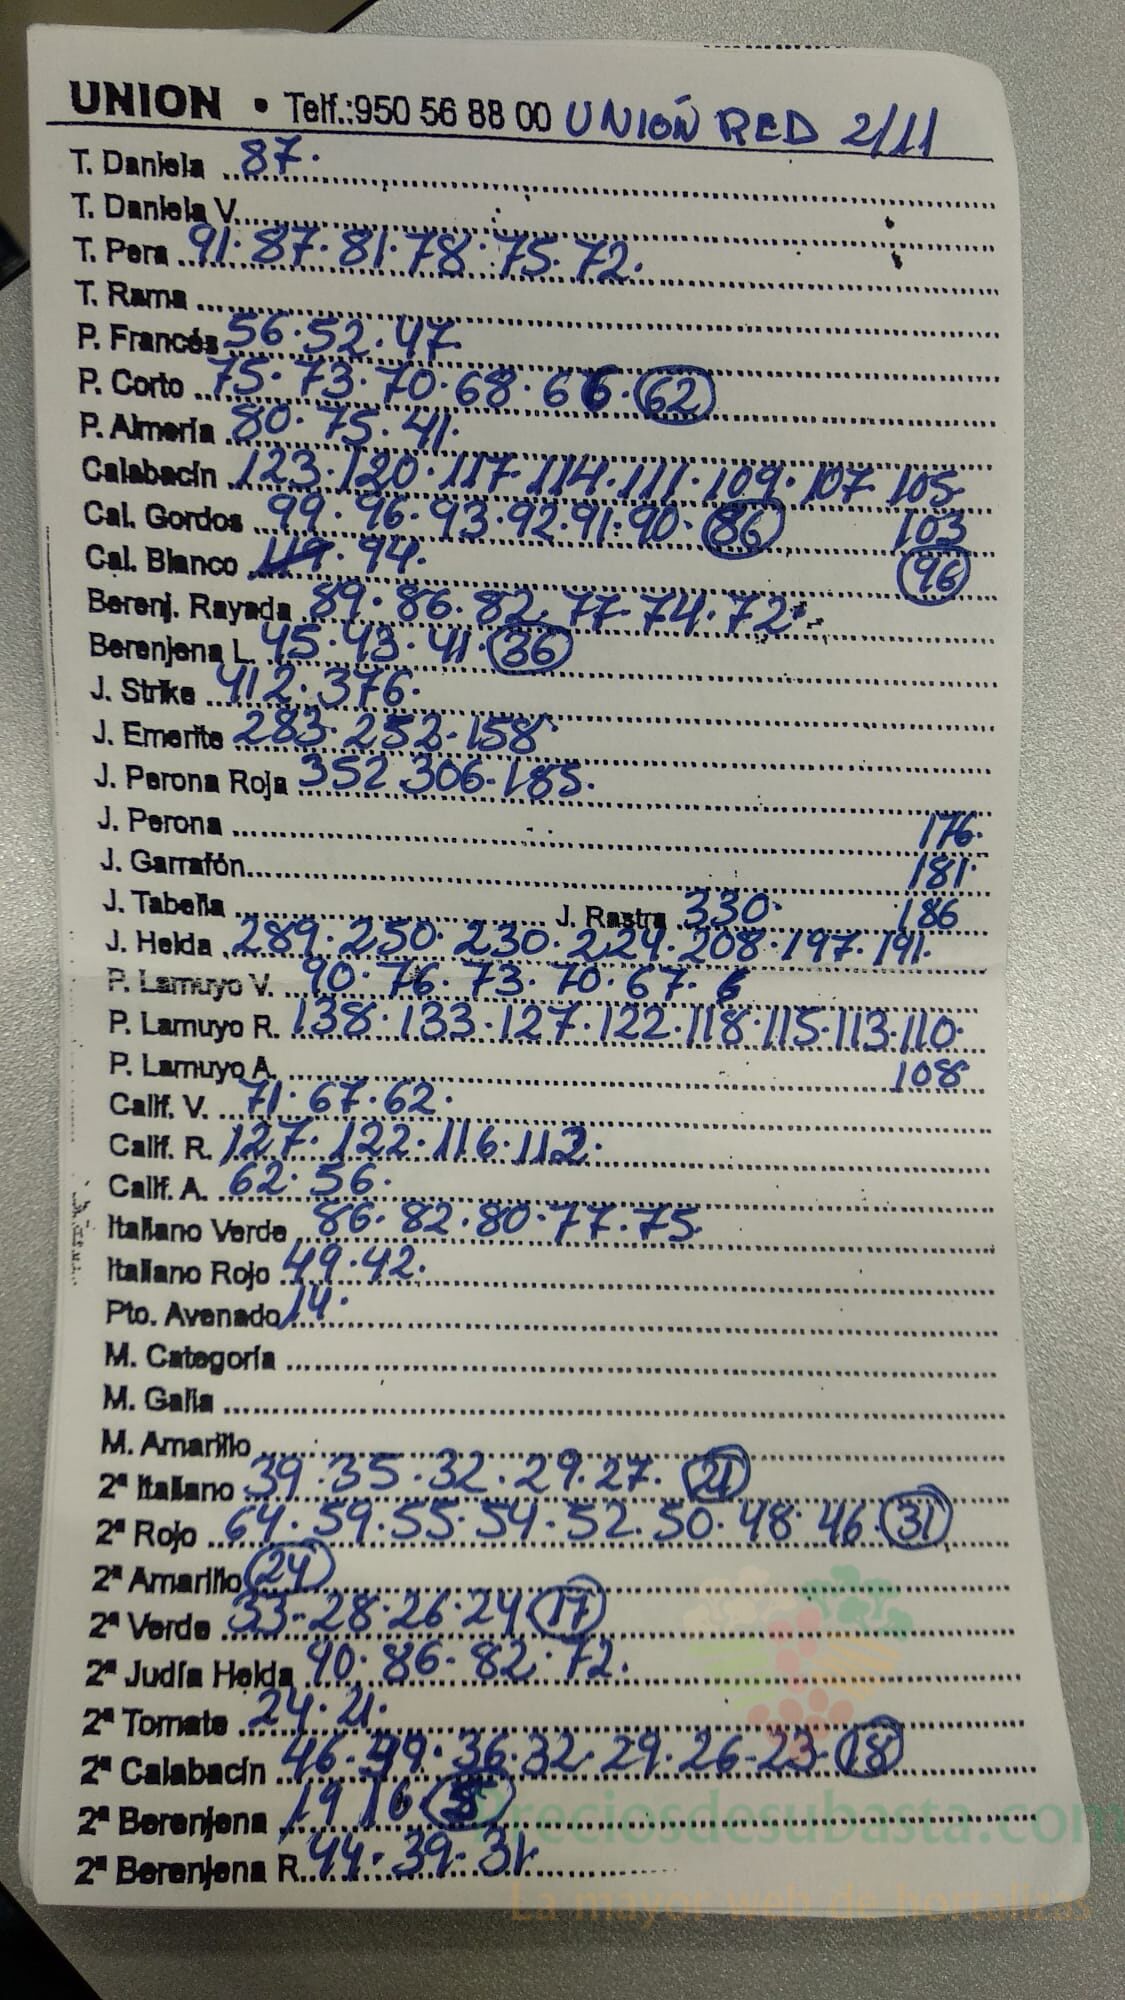 UNION • Telf.:950 56 88 00 UNIÓN RED 2/11
T. Daniela 87.
T. Daniela V.
T. Pera 91. 87. 81. 78. 75. 72.
T. Rama
P. Francés 56. 52. 47
P. Corto 75. 73. 70. 68. 66. 62
P. Almería 80. 75. 41.
Calabacín 123. 120. 117. 114. 111. 109. 107 105
Cal. Gordos 99. 96. 93. 92. 91. 90. 86 103
Cal. Blanco 119. 94. 96
Berenj. Rayada 89. 86. 82. 77. 74. 72.
Berenjena L. 45. 43. 41. 36
J. Strike 412. 376.
J. Emerite 283. 252. 158
J. Perona Roja 352 306. 185.
J. Perona 176.
J. Garrafón 181.
J. Tabella J. Rastra 330. 186
J. Helda 289. 250. 230. 224. 208. 197. 191.
P. Lamuyo V. 90. 76. 73. 70. 67. 6
P. Lamuyo R. 138. 133. 127. 122. 118. 115. 113. 110.
P. Lamuyo A. 108
Calif. V. 71. 67. 62.
Calif. R. 127. 122. 116. 112.
Calif. A. 62. 56.
Italiano Verde 86. 82. 80. 77. 75.
Italiano Rojo 49. 42.
Pto. Avenado 14.
M. Categoría
M. Galia
M. Amarillo
2ª Italiano 39. 35. 32. 29. 27. 21
2ª Rojo 64. 59. 55. 54. 52. 50. 48. 46. 31
2ª Amarillo 24
2ª Verde 33. 28. 26. 24 17
2ª Judía Helda 90. 86. 82. 72.
2ª Tomate 24. 21.
2ª Calabacín 46. 36. 32. 29. 26. 23. 18
2ª Berenjena 19 16
2ª Berenjena R. 44. 39. 31.
Preciosdesubasta.com
La mayor web de hortalizas